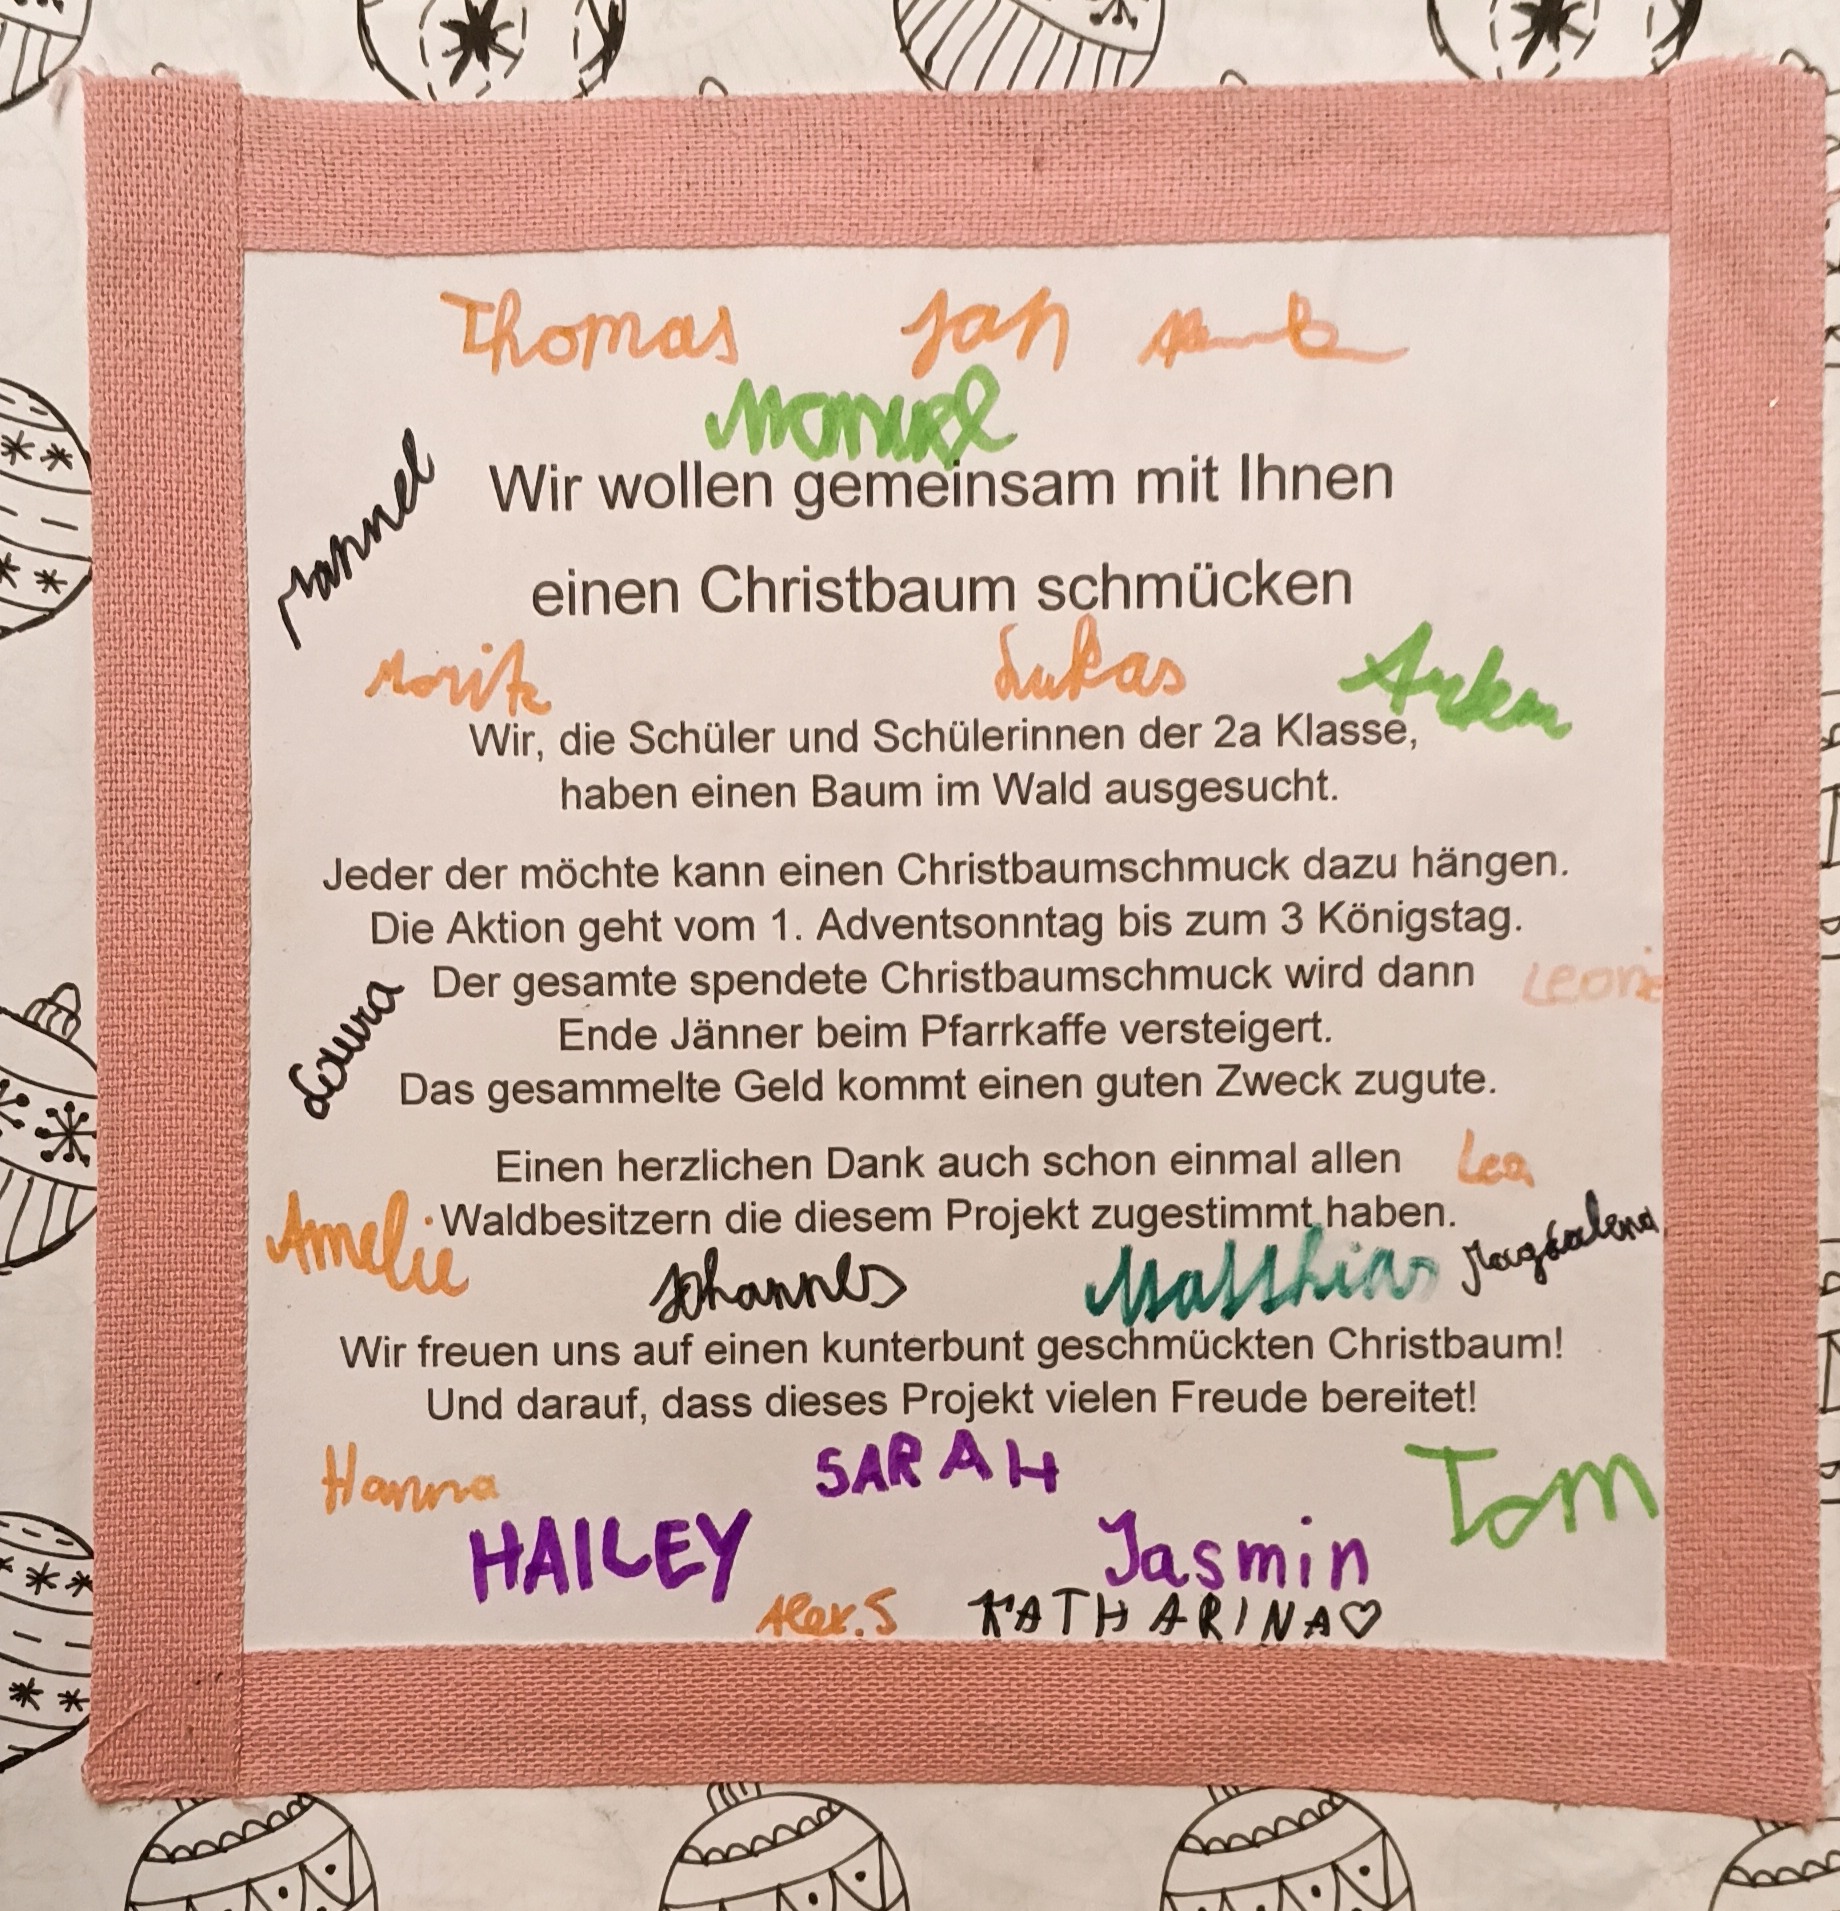 Thomas Jan
Manuel
Wir wollen gemeinsam mit Ihnen
Mannel
einen Christbaum schmücken
Moritz Lukas
Wir, die Schüler und Schülerinnen der 2a Klasse,
haben einen Baum im Wald ausgesucht.
Jeder der möchte kann einen Christbaumschmuck dazu hängen.
Die Aktion geht vom 1. Adventsonntag bis zum 3 Königstag.
Der gesamte spendete Christbaumschmuck wird dann
Leonie
Ende Jänner beim Pfarrkaffe versteigert.
Laura
Das gesammelte Geld kommt einen guten Zweck zugute.
Einen herzlichen Dank auch schon einmal allen
Lea
Waldbesitzern die diesem Projekt zugestimmt haben.
Amelie Johannes Matthias Magdalena
Wir freuen uns auf einen kunterbunt geschmückten Christbaum!
Und darauf, dass dieses Projekt vielen Freude bereitet!
Hanna SARAH Tom
HAILEY Jasmin
Alex.S KATHARINA♡